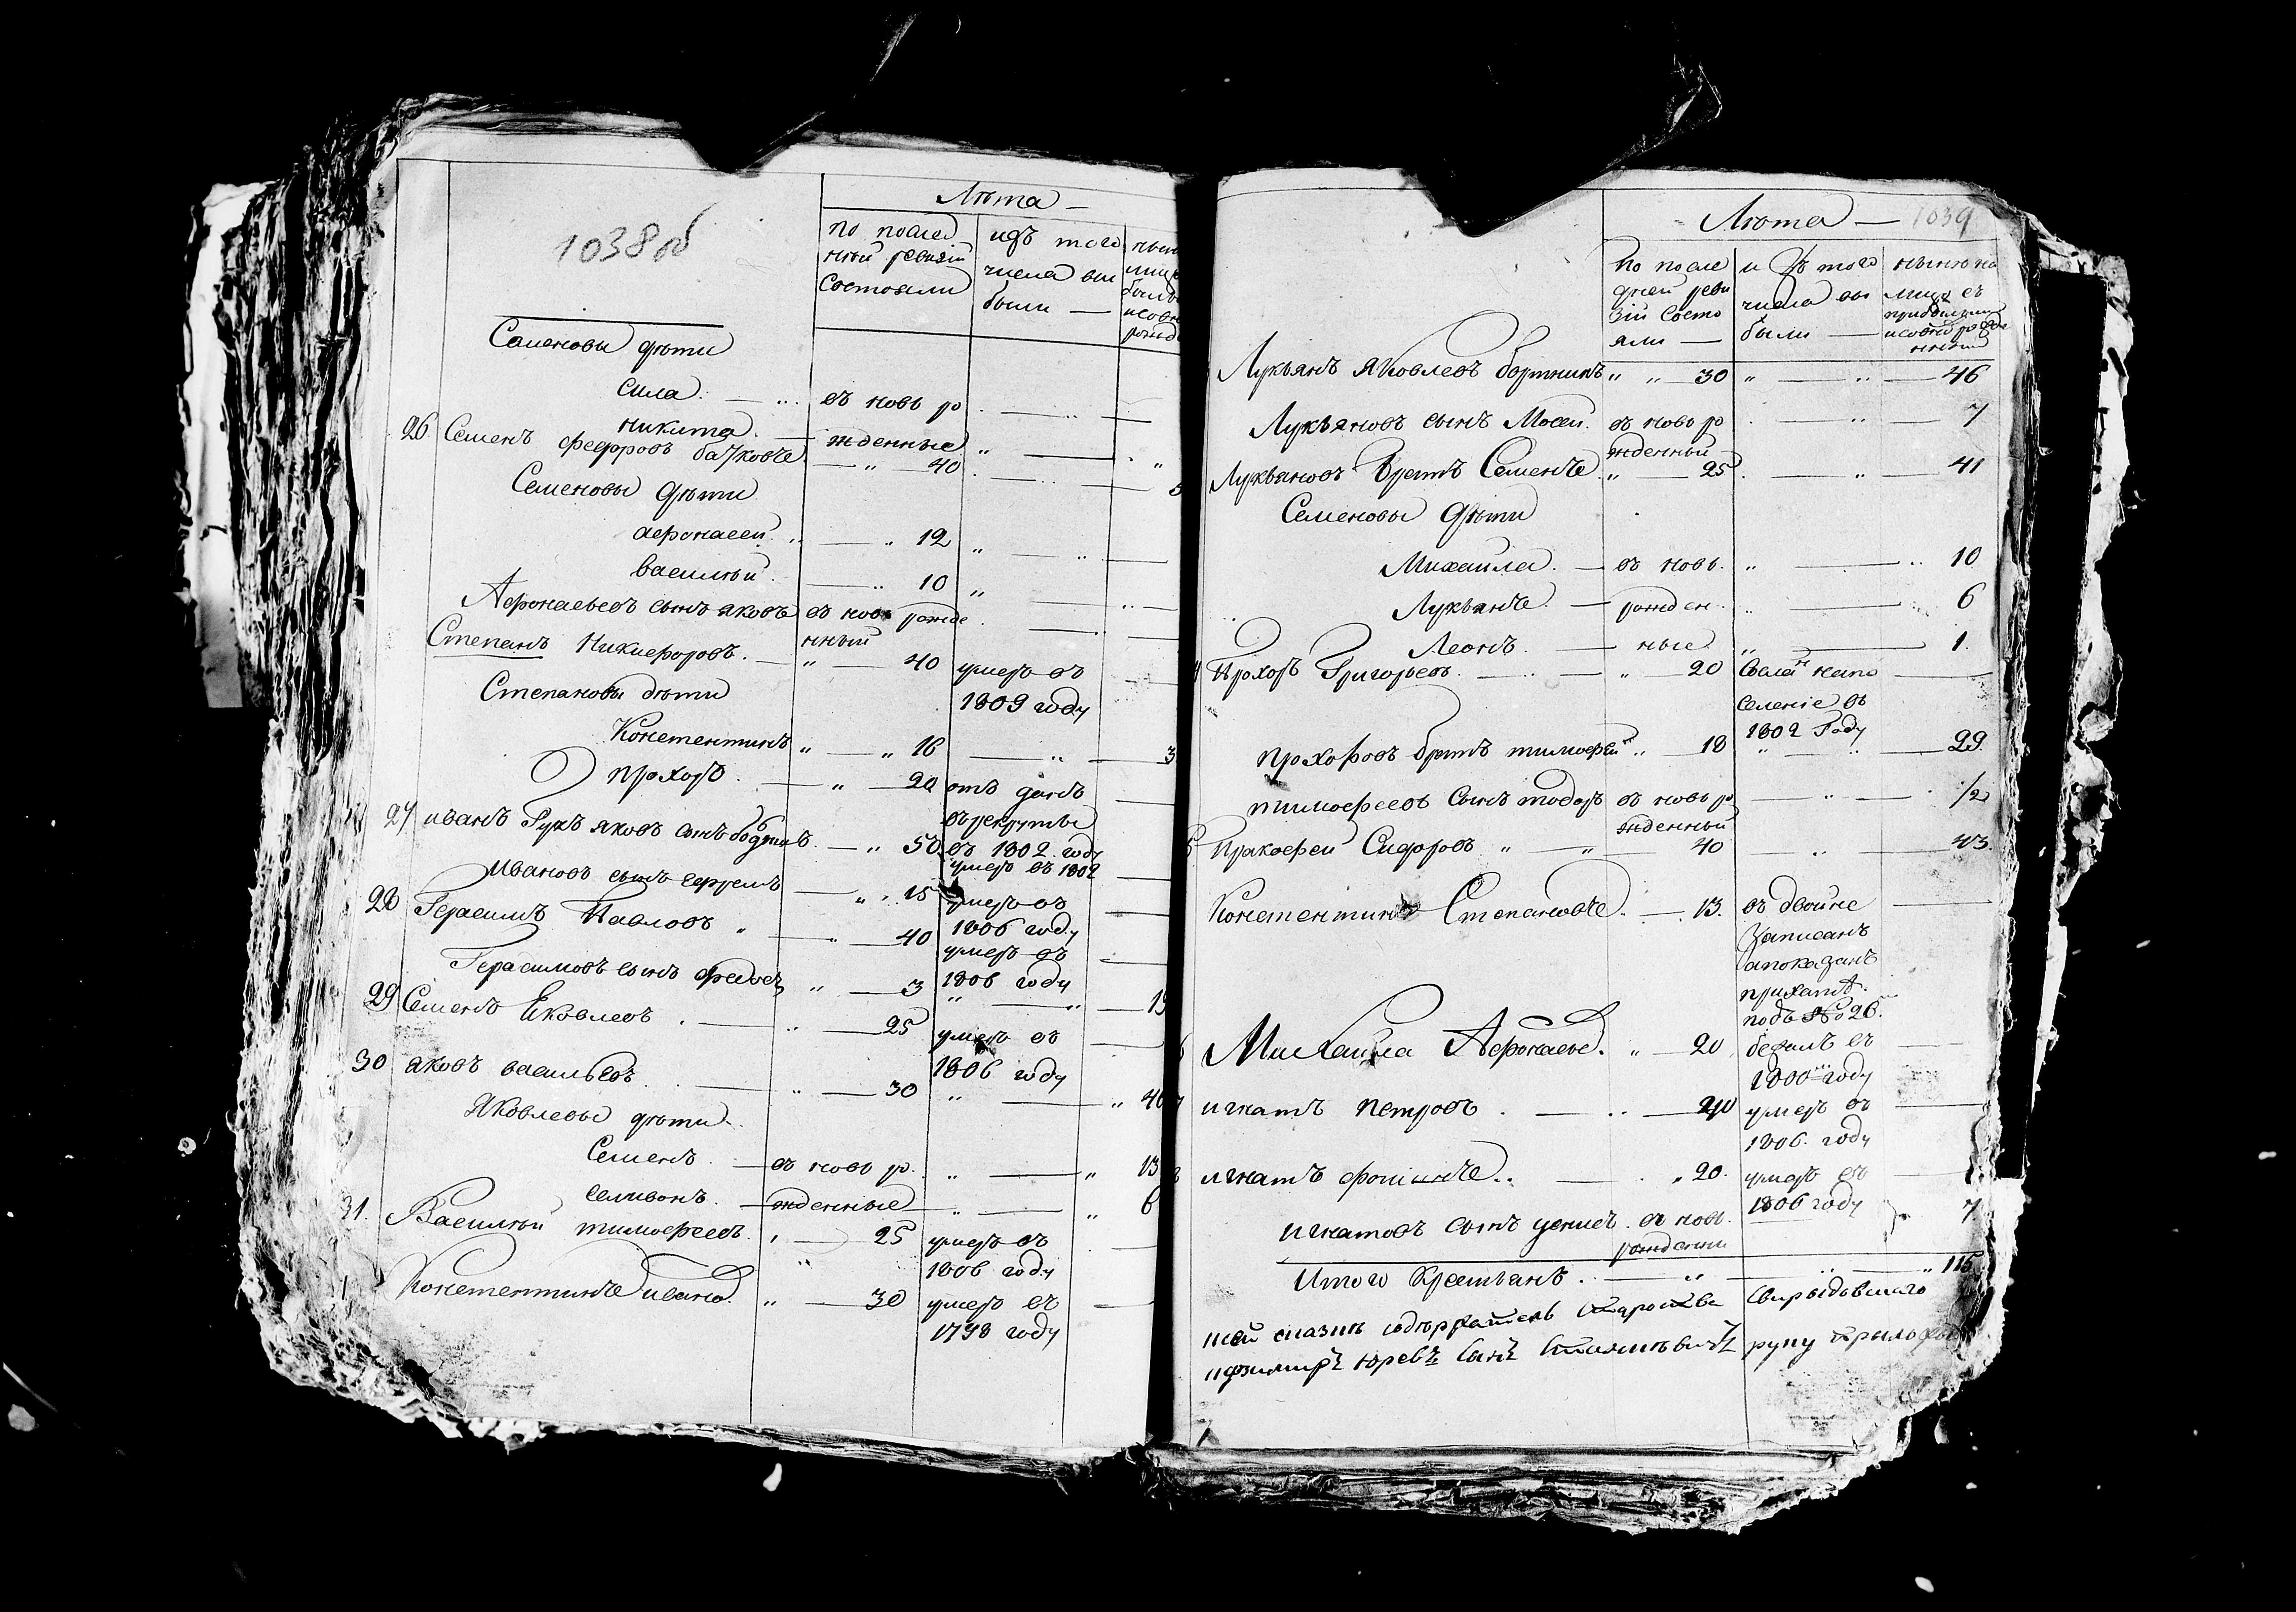 1038 об
Лѣта —
по послед
ней ревизій
состояли
изъ того
числа вы
были —
Семеновы дѣти
Сила. — въ новь ро
никита. — жденные
26 Семенъ Федоровъ — 40
Семеновы дѣти
афонасей — 12
василий — 10
Афонасьевъ сынъ яковъ въ новь рожде
нный
Степанъ Никифоровъ. — 40 умеръ въ
1809 году
Степановы дѣти
Констентинъ — 16
прохоръ. — 20 отъ данъ
въ рекруты
въ 1802 году
27 иванъ яковъ сынъ — 50 умеръ въ 1802
Ивановъ сынъ — 15 умеръ въ
1806 году
28 Герасимъ Павловъ — 40 умеръ въ
1806 году
Герасимовъ сынъ — 3 — 19
29 Семенъ Яковлевъ. — 25 умеръ въ
1806 году
30 яковъ васильевъ — 30 — 46
Яковлевы дѣти
Семенъ — въ новь ро — 13
селивонъ. — жденные — 6
31. Василий тимофеевъ. — 25 умеръ въ
1806 году
Констентинъ ивано. — 30 умеръ въ
1798 году
Лѣта — 1039
по после
дней реви
зій состо
яли —
изъ того
числа вы
были —
Лукьянъ Яковлевъ бортникъ — 30 — 46
Лукьяновъ сынъ Мосей. въ новь ро — 7
жденный
Лукьяновъ братъ Семенъ — 25 — 41
Семеновы дѣти
Михаила. — въ новь. — 10
Лукьянъ. — рожден — 6
Леонъ. — ные — 1.
Прохоръ Григорьевъ. — 20 Сосланъ напо
селеніе въ
1802 Году
прохоровъ братъ тимофей — 18 — 29.
тимофеевъ сынъ тодоръ въ новь ро — 1/2
жденный
Пракофей Сидоровъ — 40 — 43.
Констентинъ Степановъ. — 13. въ двойне
Записанъ
апоказанъ
прихатѣ
подъ №о 26.
Михаила Афонасье. — 20 бежалъ въ
1800 году
игнатъ петровъ. — 40 умеръ въ
1806. году
игнатъ — 20. умеръ въ
1806 году
игнатовъ сынъ денисъ. въ новь. — 7
рожденный
Итого Крестьянъ. — 115